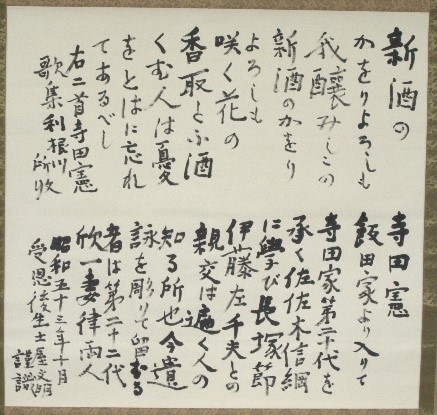 新酒の
かをりよろしも
我醸みしこの
新酒のかをり
よろしも
咲く花の
香取とふ酒
くむ人は憂
をとはに忘れ
てあるべし
右二首寺田憲
歌集利根川所收
寺田憲
飯田家より入りて
寺田家第二十代を
承く佐佐木信綱
に學び長塚節
伊藤左千夫との
親交は遍く人の
知る所也今遺
詠を彫りて留むる
者は第二十二代
欣一妻律両人
昭和五十三年十月
受恩後生土屋文明